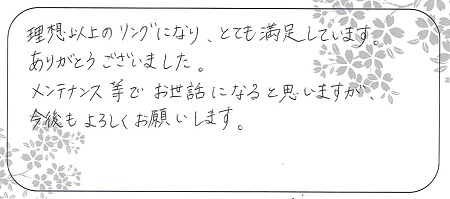 理想以上のリングになり、とても満足しています。
ありがとうございました。
メンテナンス等でお世話になると思いますが、
今後もよろしくお願いします。